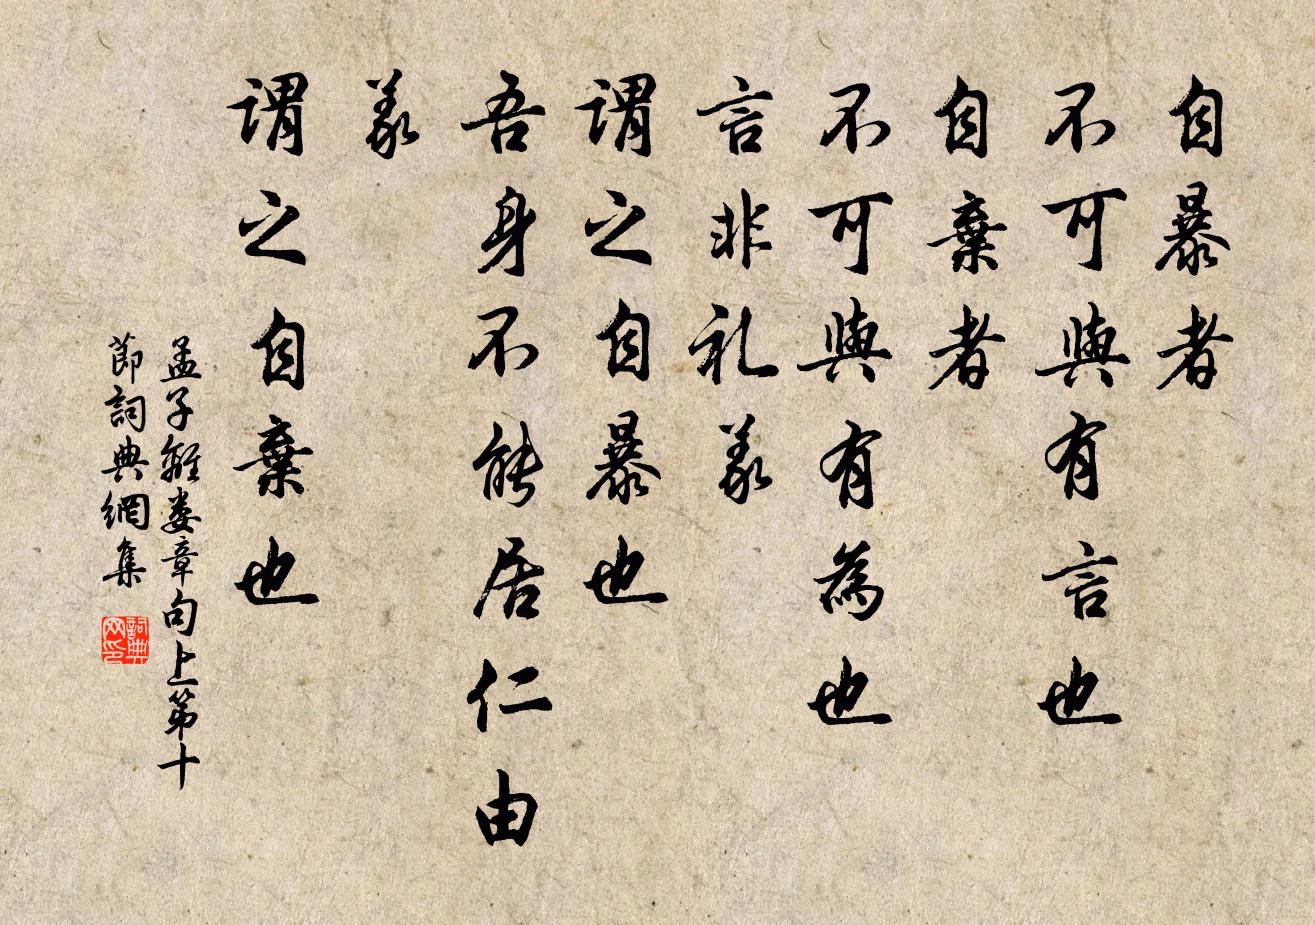 自暴者
不可與有言也
自棄者
不可與有為也
言非礼義
謂之自暴也
吾身不能居仁由
義
謂之自棄也
孟子離婁章句上第十
節詞典網集
詞典
网印